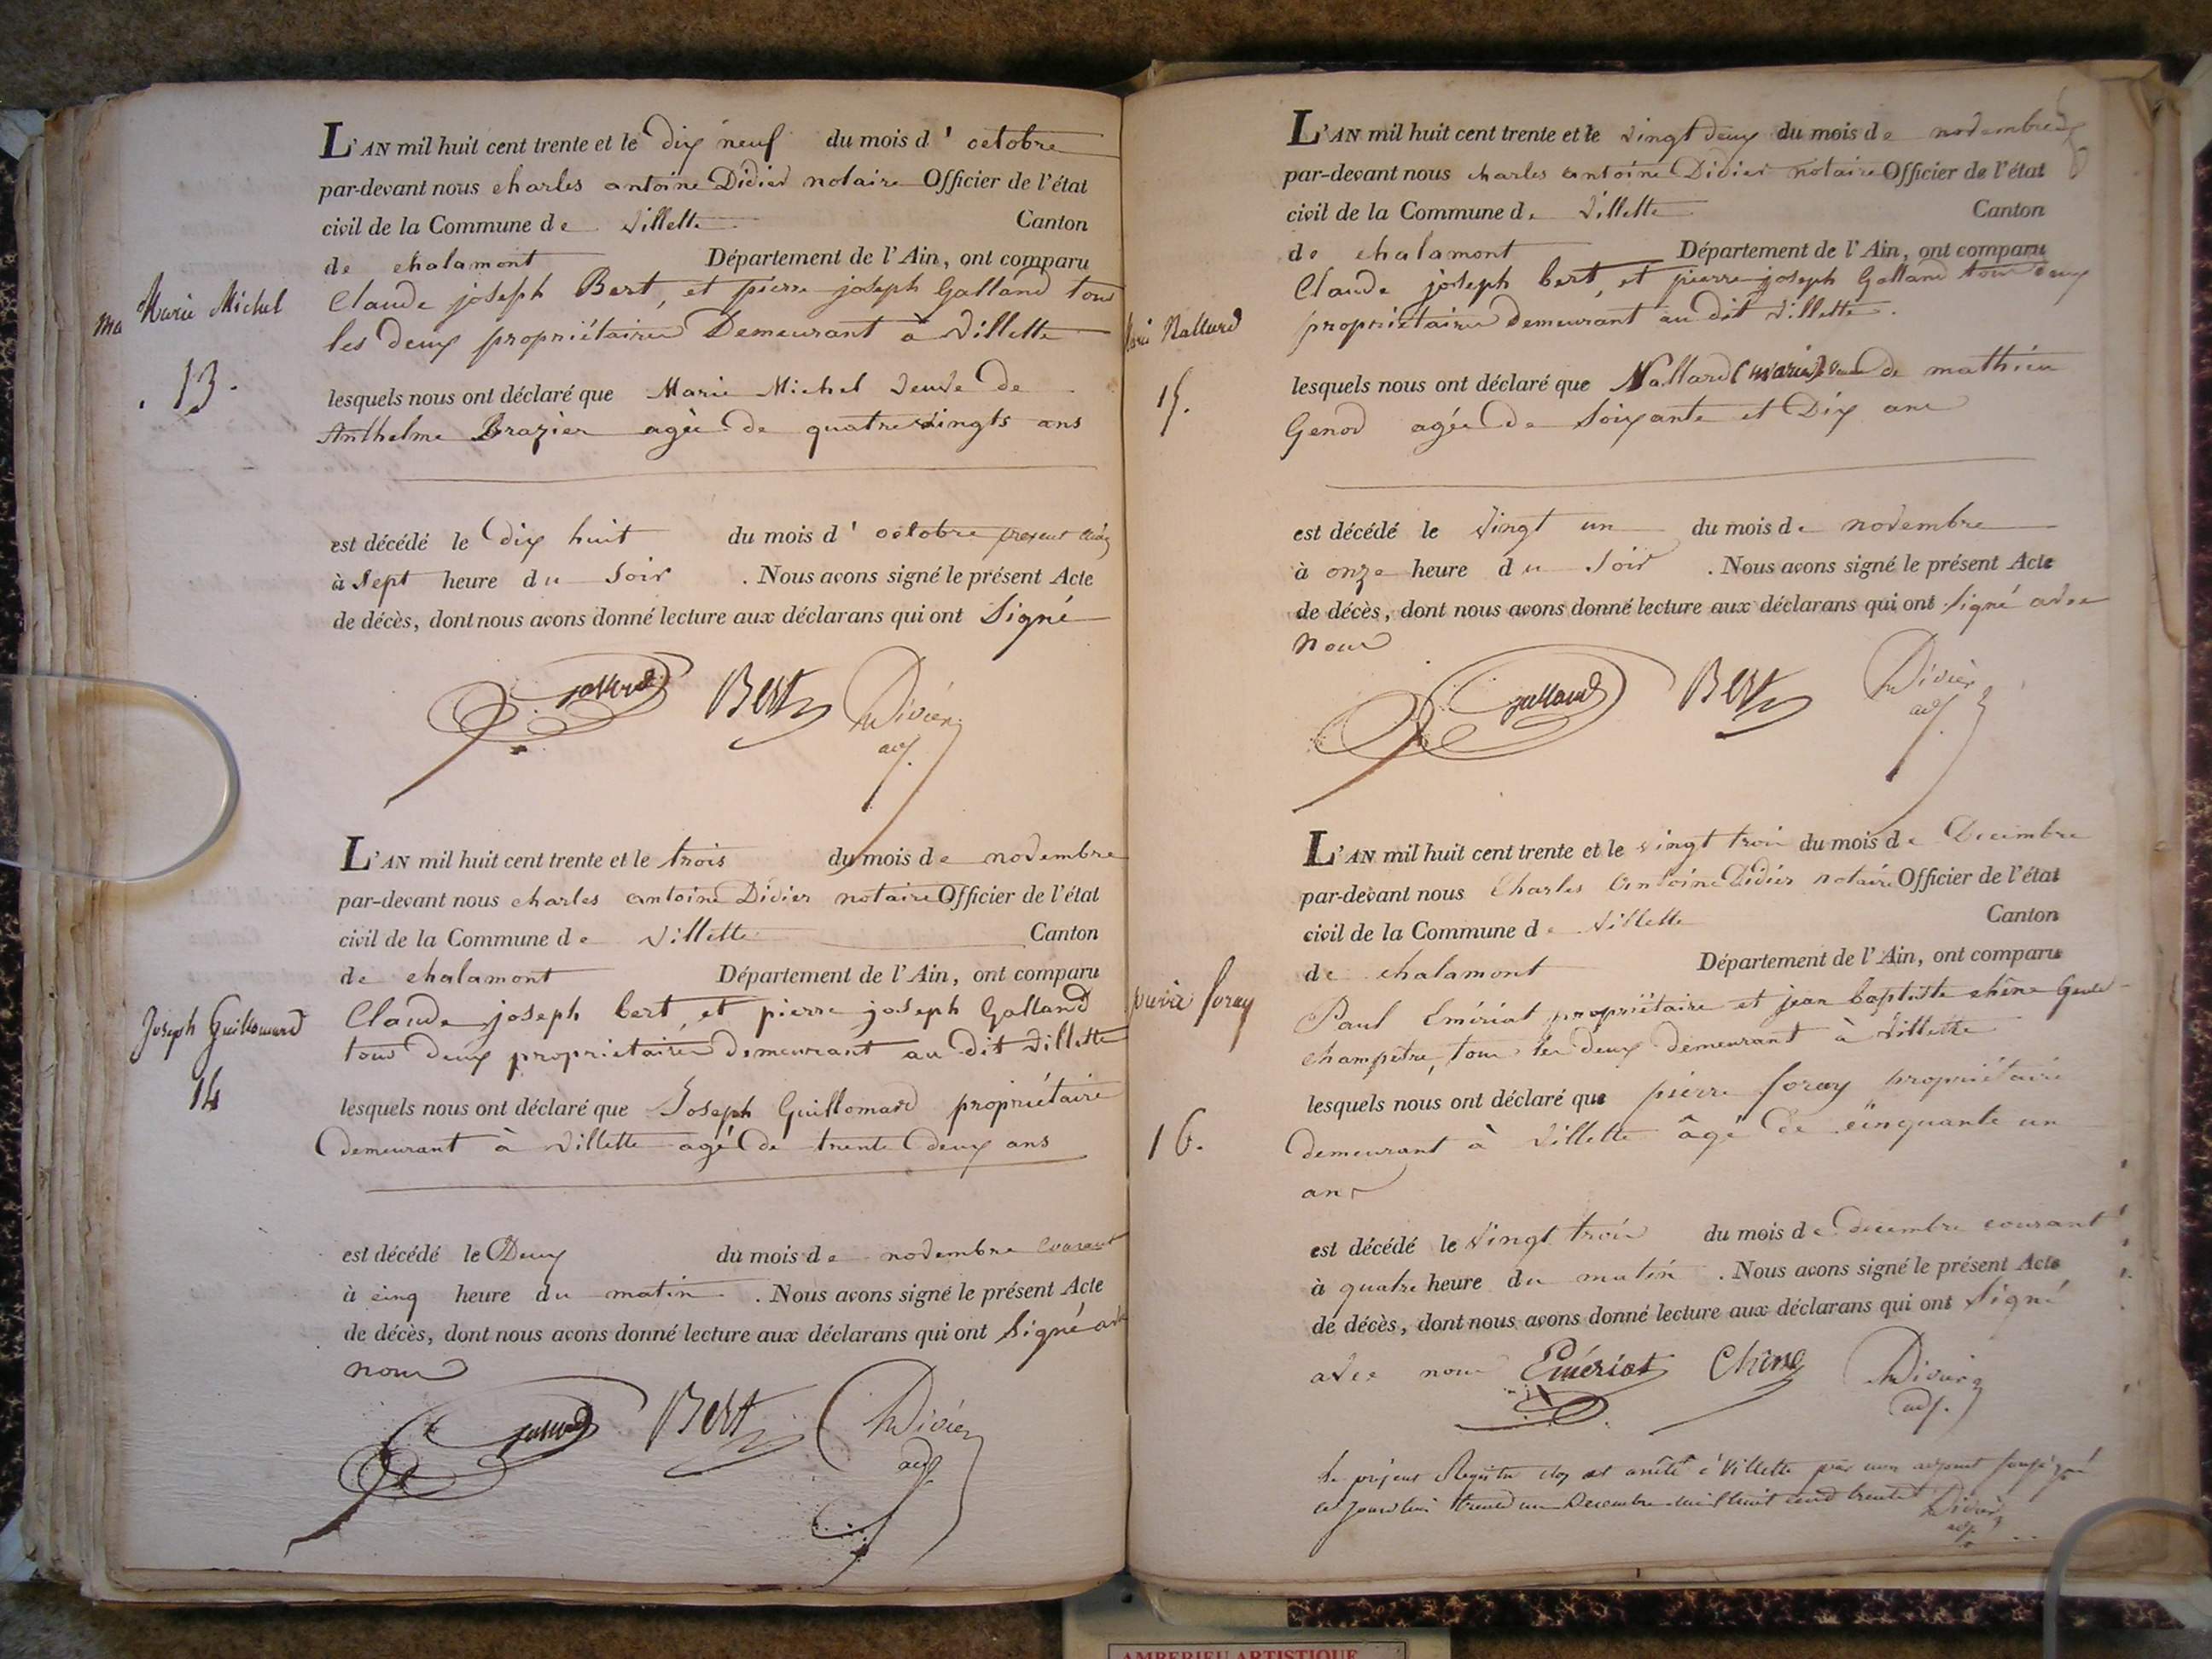 L'AN mil huit cent trente et le dix neuf du mois d' octobre
par-devant nous charles antoine Didier notaire Officier de l'état
civil de la Commune de Villette Canton
de chalamont Département de l'Ain, ont comparu
ma Marie Michel
Claude joseph Bert, et pierre joseph Galland tous
les deux propriétaires Demeurant à Villette
13.
lesquels nous ont déclaré que Marie Michel veuve de
Anthelme Brazier agée de quatre vingts ans
est décédé le dix huit du mois d' octobre présent
à Sept heure du Soir . Nous avons signé le présent Acte
de décès, dont nous avons donné lecture aux déclarans qui ont Signé
galland Bert Didier
adj.
L'AN mil huit cent trente et le trois du mois de novembre
par-devant nous charles antoine Didier notaire Officier de l'état
civil de la Commune de Villette Canton
de chalamont Département de l'Ain, ont comparu
Joseph Guillomard
Claude joseph bert, et pierre joseph Galland
tous deux propriétaires demeurant au dit Villette
14
lesquels nous ont déclaré que Joseph Guillomard propriétaire
Demeurant à Villette agé de trente deux ans
est décédé le Deux du mois de novembre courant
à cinq heure du matin . Nous avons signé le présent Acte
de décès, dont nous avons donné lecture aux déclarans qui ont Signé
nous
galland Bert Didier
adj.
L'AN mil huit cent trente et le vingt deux du mois de novembre
par-devant nous charles antoine Didier notaire Officier de l'état
civil de la Commune de Villette Canton
de chalamont Département de l'Ain, ont comparu
Claude joseph bert, et pierre joseph Galland tous deux
Nallard
propriétaires Demeurant au dit Villette.
15.
lesquels nous ont déclaré que Nallard (marie) de mathieu
Genod agée de Soixante et Dix ans
est décédé le vingt un du mois de novembre
à onze heure du Soir . Nous avons signé le présent Acte
de décès, dont nous avons donné lecture aux déclarans qui ont signé avec
nous
galland Bert Didier
adj.
L'AN mil huit cent trente et le vingt trois du mois de Décembre
par-devant nous Charles Antoine Didier notaire Officier de l'état
civil de la Commune de Villette Canton
de chalamont Département de l'Ain, ont comparu
foray
Paul Emériat propriétaire et jean baptiste chêne Garde
champêtre, tous les deux demeurant à Villette
lesquels nous ont déclaré que pierre foray propriétaire
16.
demeurant à Villette âgé de cinquante un
ans
est décédé le vingt trois du mois de decembre courant
à quatre heure du matin . Nous avons signé le présent Acte
de décès, dont nous avons donné lecture aux déclarans qui ont signé
avec nous Emériat Chêne Didier
adj.
Le présent Registre clos et arrêté à Villette par moi adjoint soussigné
ce jourdhui trente un Decembre mil huit cent trente Didier
adj.
AMBERIEU ARTISTIQUE